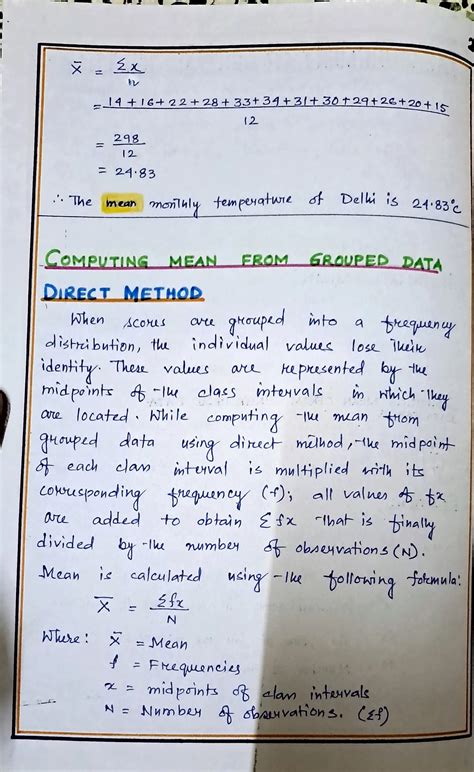 X̄ = Σx
n
= 14+16+22+28+33+34+31+30+29+26+20+15
12
= 298
12
= 24.83
∴ The mean monthly temperature of Delhi is 24.83°c
COMPUTING MEAN FROM GROUPED DATA
DIRECT METHOD
When scores are grouped into a frequency
distribution, the individual values lose their
identity. These values are represented by the
midpoints of the class intervals in which they
are located. While computing the mean from
grouped data using direct method, the midpoint
of each class interval is multiplied with its
corresponding frequency (f); all values of fx
are added to obtain Σfx that is finally
divided by the number of observations (N).
Mean is calculated using the following formula:
X̄ = Σfx
N
Where: X̄ = Mean
f = Frequencies
x = midpoints of class intervals
N = Number of observations. (Σf)